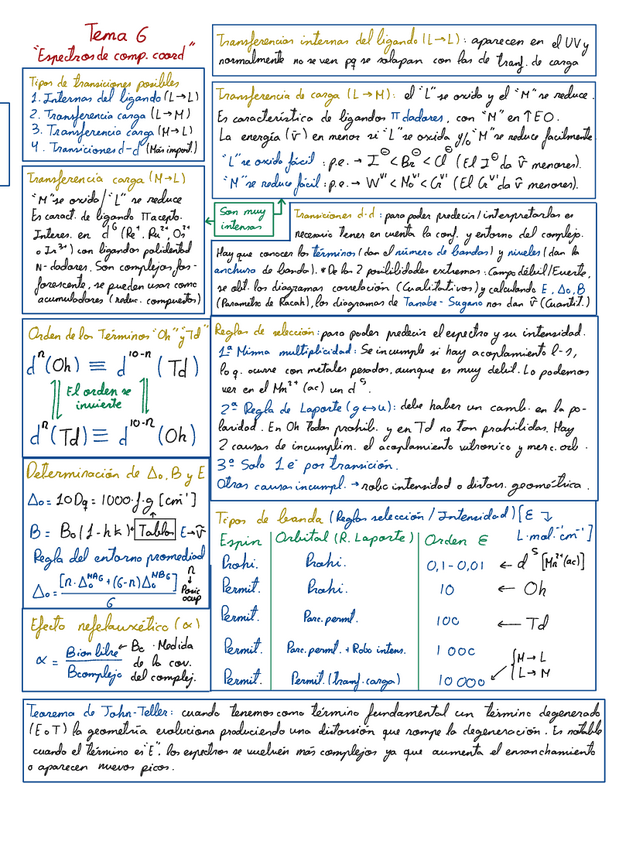 Tema 6
"Espectros de comp. coord"
Tipos de transiciones posibles
1. Internas del ligando (L→L)
2. Transferencia carga (L→M)
3. Transferencia carga (M→L)
4. Transiciones d-d (Más import.)
Transferencias internas del ligando (L→L): aparecen en el UV y
normalmente no se ven pq se solapan con las de transf. de carga
Transferencia de carga (L→M): el "L" se oxida y el "M" se reduce.
Es característica de ligandos π dadores, con "M" en ↑EO.
La energía (ῡ) en menor si "L" se oxida y/o "M" se reduce facilmente
"L" se oxida fácil: p.e. → I⊖ < Br⊖ < Cl⊖ (El I⊖ da ῡ menores).
"M" se reduce fácil: p.e. → W^VI < Mo^VI < Cr^VI (El Cr^VI da ῡ menores).
Transferencia carga (M→L)
"M" se oxida / "L" se reduce
Es caract. de ligando π acepto.
Interes. en d⁶ (Re⁺, Ru²⁺, Os²⁺
o Ir³⁺) con ligandos polidentad
N-dadores. Son complejos fos-
forescente, se pueden usar como
acumuladores (reduc. compuestos)
Son muy
intensas
Transiciones d-d: para poder predecir/interpretarlas es
necesario tener en cuenta la conf. y entorno del complejo.
Hay que conocer los términos (dan el número de bandas) y niveles (dan la
anchura de banda). * De las 2 posibilidades extremas: Campo débil/Fuerte,
se obt. los diagramas correlación (Cualitativos) y calculando E, Δo, B
(Parametro de Racah), los diagramas de Tanabe-Sugano nos dan ῡ (Cuantit.)
Orden de los Términos "Oh" y "Td"
dⁿ(Oh) ≡ d¹⁰⁻ⁿ (Td)
El orden se
invierte
dⁿ(Td) ≡ d¹⁰⁻ⁿ (Oh)
Reglas de selección: para poder predecir el espectro y su intensidad.
1ª Misma multiplicidad: Se incumple si hay acoplamiento l-s,
lo q. ocurre con metales pesados, aunque es muy debil. Lo podemos
ver en el Mn²⁺(ac) un d⁵.
2ª Regla de Laporte (g↔u): debe haber un camb. en la po-
laridad. En Oh todas prohib. y en Td no tan prohibidas. Hay
2 causas de incumplim. el acoplamiento vibronico y merc. orb.
3ª Solo 1 e⁻ por transición.
Otras causas incumpl. → robo intensidad o distors. geométrica.
Determinación de Δo, B y E
Δo = 10Dq = 1000·f·g [cm⁻¹]
B = Bo(1-hk) * Tablas E→ῡ
Regla del entorno promediad
Δo = [n·Δo^MA6 + (6-n)Δo^MB6] / 6
n
↓
Posic
ocup
Efecto nefelauxético (α)
α = B ion libre / B complejo ← Bo · Medida
de la cov.
del complej.
Tipos de banda (Reglas selección / Intensidad) [ε ↴
L·mol⁻¹·cm⁻¹]
Espin Orbital (R. Laporte) Orden ε
Prohi. Prohi. 0,1-0,01 ← d⁵ [Mn²⁺(ac)]
Permit. Prohi. 10 ← Oh
Permit. Parc. permit. 100 ← Td
Permit. Parc. permit. + Robo intens. 1000
Permit. Permit. (Transf. carga) 10000 { M→L
L→M
Teorema de Jahn-Teller: cuando tenemos como término fundamental un término degenerado
(E o T) la geometría evoluciona produciendo una distorsión que rompe la degeneración. Es notable
cuando el término es "E". los espectros se vuelven más complejos ya que aumenta el ensanchamiento
o aparecen nuevos picos.